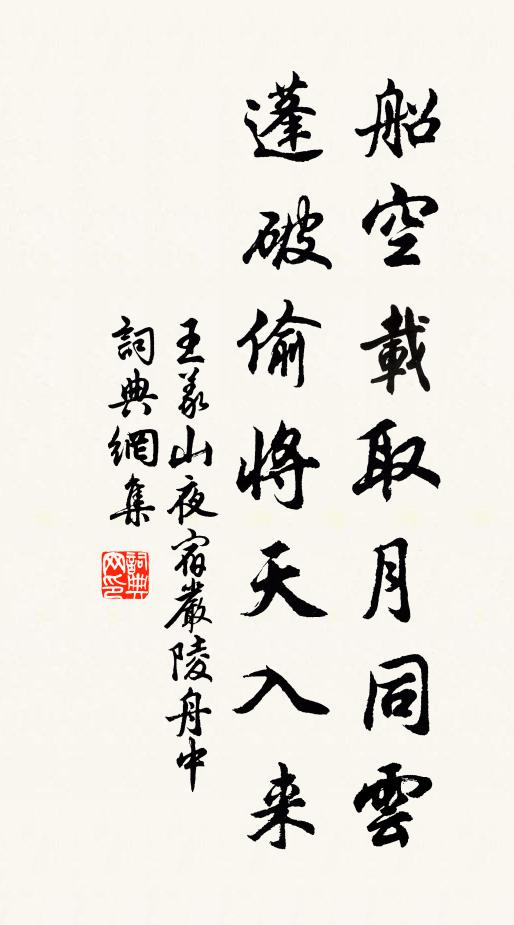 船空載取月同雲
蓬破偷將天入来
王義山夜宿嚴陵舟中
詞典網集
詞典网印